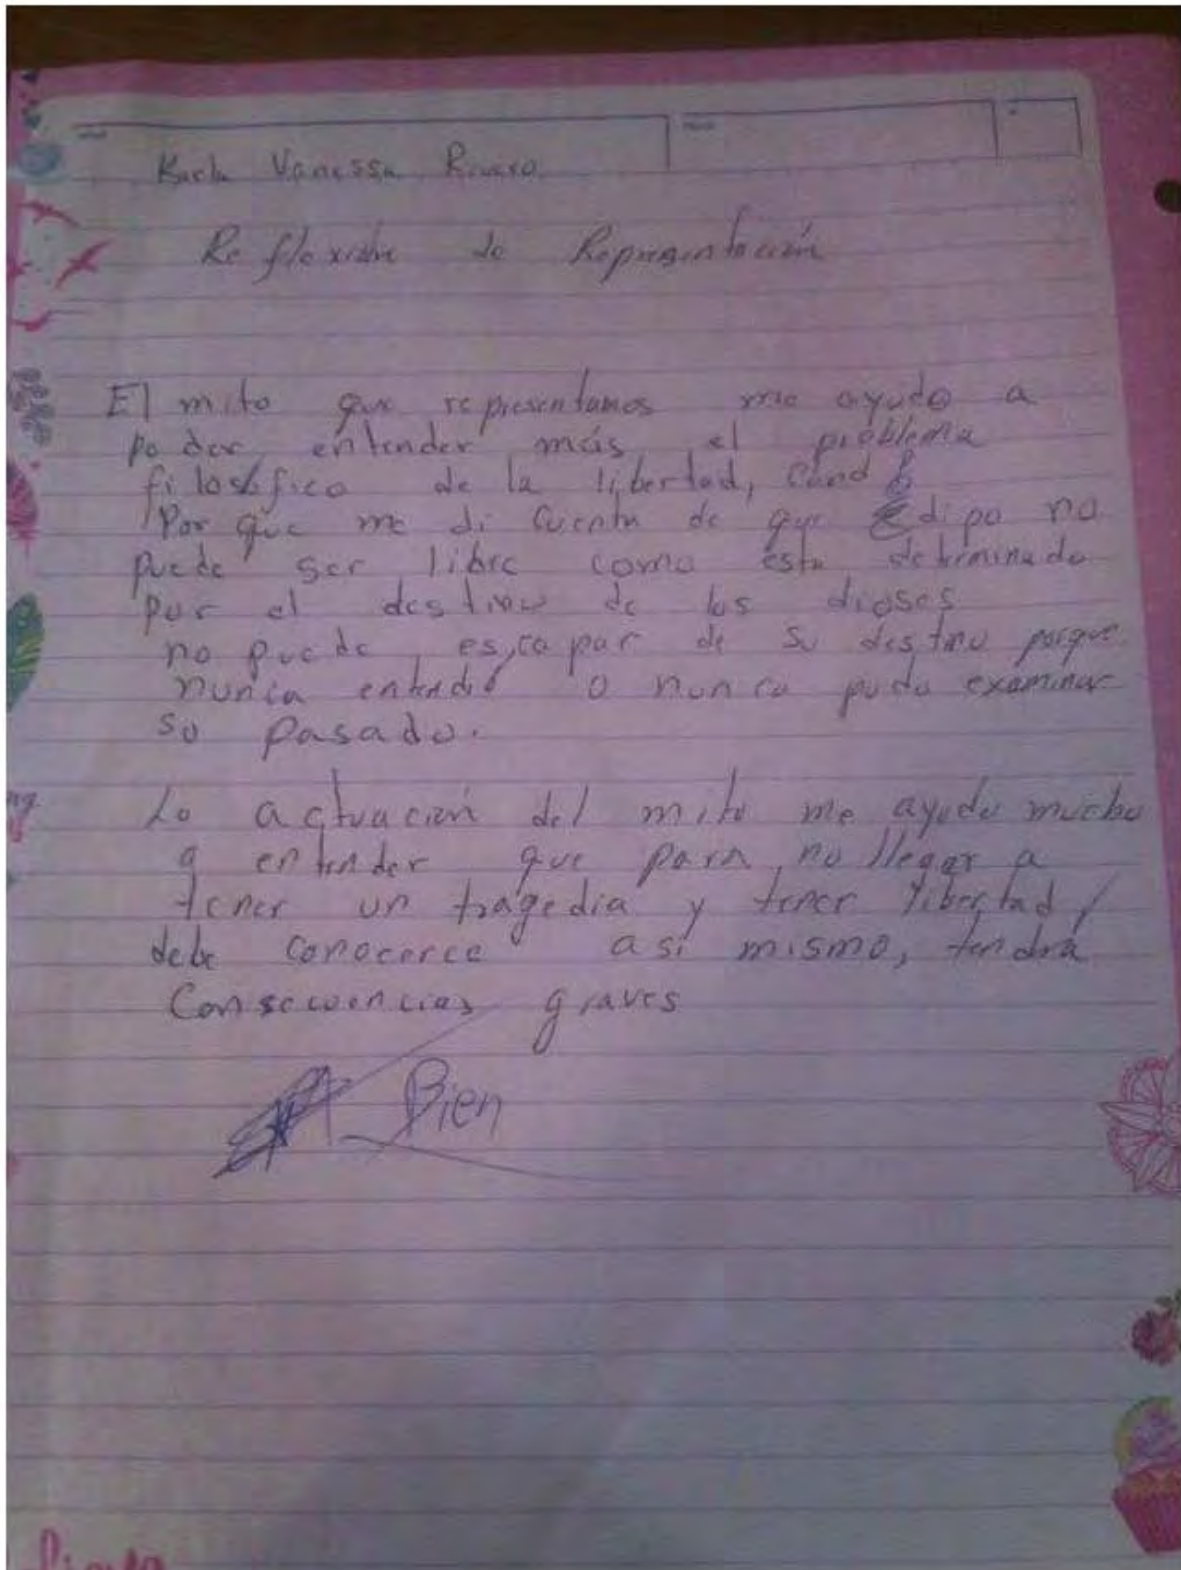 Karla Vanessa Rivero
Reflexión de Representación
El mito que representamos me ayudo a
poder entender más el problema
filosófico de la libertad,
Por que me di cuenta de que Edipo no
puede ser libre como esta determinado
por el destino de los dioses
no puede escapar de su destino porque
nunca entendió o nunca pudo examinar
su pasado.
La actuación del mito me ayudo mucho
a entender que para no llegar a
tener un tragedia y tener libertad,
debe conocerce asi mismo, tendra
Consecuencias graves
Bien